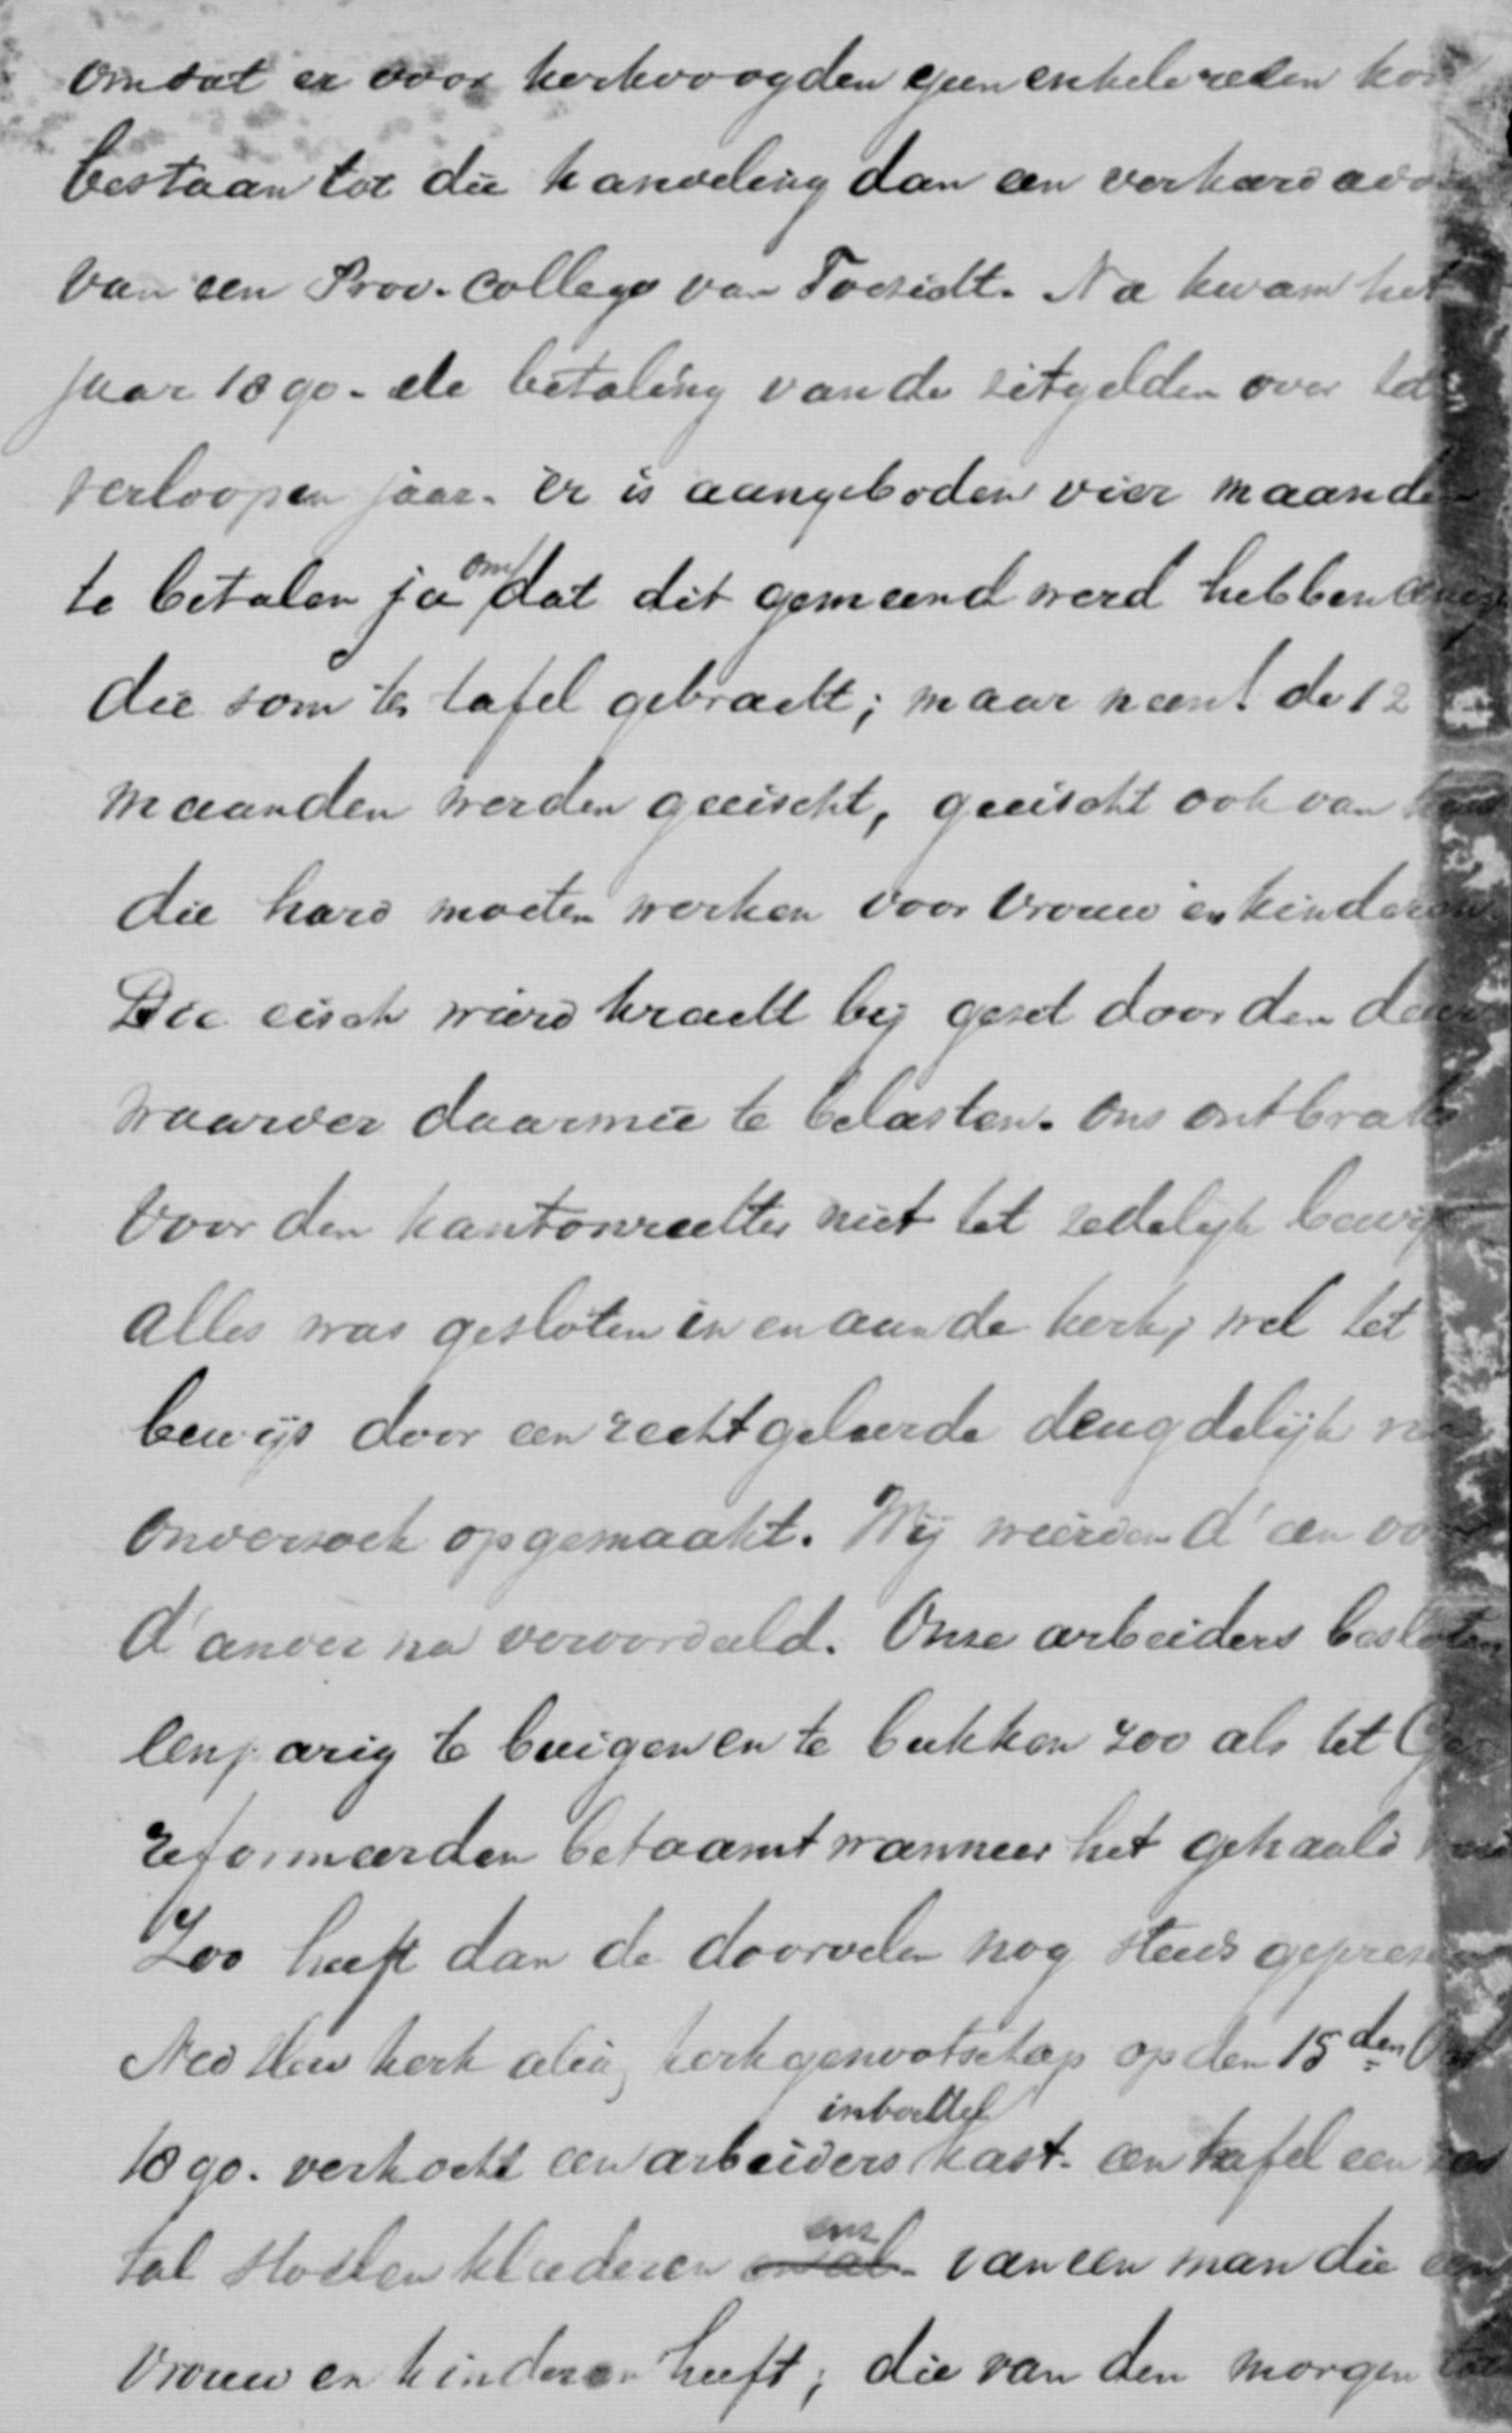 omdat er voor kerkvoogden geen enkele reden kon
bestaan tot die handeling dan een verkeerd advies
van een Prov. College van Toezicht. Na kwam het
jaar 1890. de betaling van de zitgelden over het
verloopen jaar. er is aangeboden vier maanden
te betalen ja omdat dit gemeend werd hebben
die som ter tafel gebracht; maar neen! de 12
maanden werden geeischt, geeischt ook van
die hard moeten werken voor vrouw en kinderen
Die eisch wierd kracht bij gezet door den deur
waarder daarmee te belasten. Ons ontbrak
voor den kantonrechter niet het zedelijk bewijs
alles was gesloten in en aan de kerk; wel het
bewijs door een rechtgeleerde deugdelijk na
onderzoek opgemaakt. Wij wierden d'een voor
d'ander na veroordeeld. Onze arbeiders besloten
eenparig te buigen en te bukken zoo als het Ge
reformeerden betaamt wanneer het gehaald
Zoo heeft dan de doorvoeler nog steeds
Ned Herv kerk kerkgenootschap op den 15den
1890. verkocht een arbeiders inboedel kast. een tafel een
tal stoelen klederen enz van een man die een
vrouw en kinderen heeft; die van den morgen